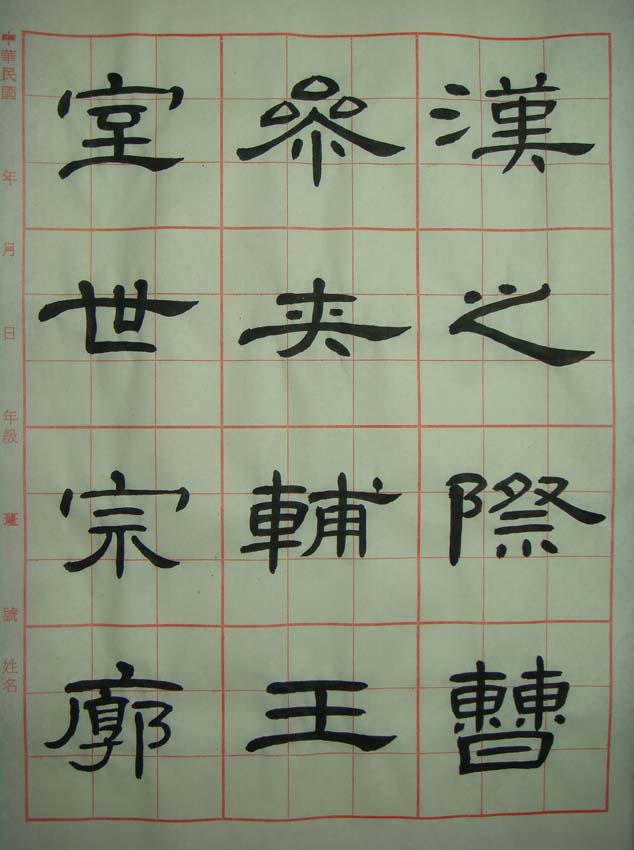 漢之際曹
參夾輔王
室世宗廓
中華民國 年 月 日 年級 號 姓名